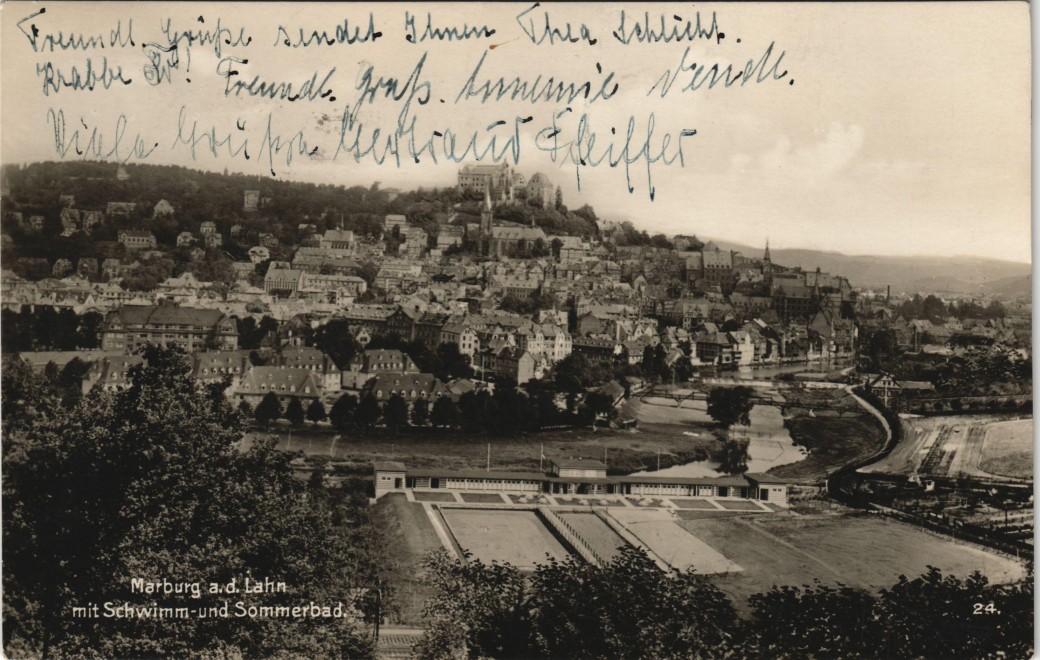 Freundl. Grüße sendet Ihnen Thea Schlicht.
Krabbe
Freundl. Gruß.
Viele Grüße Gertraud Pfeiffer
Marburg a.d. Lahn
mit Schwimm- und Sommerbad.
24.